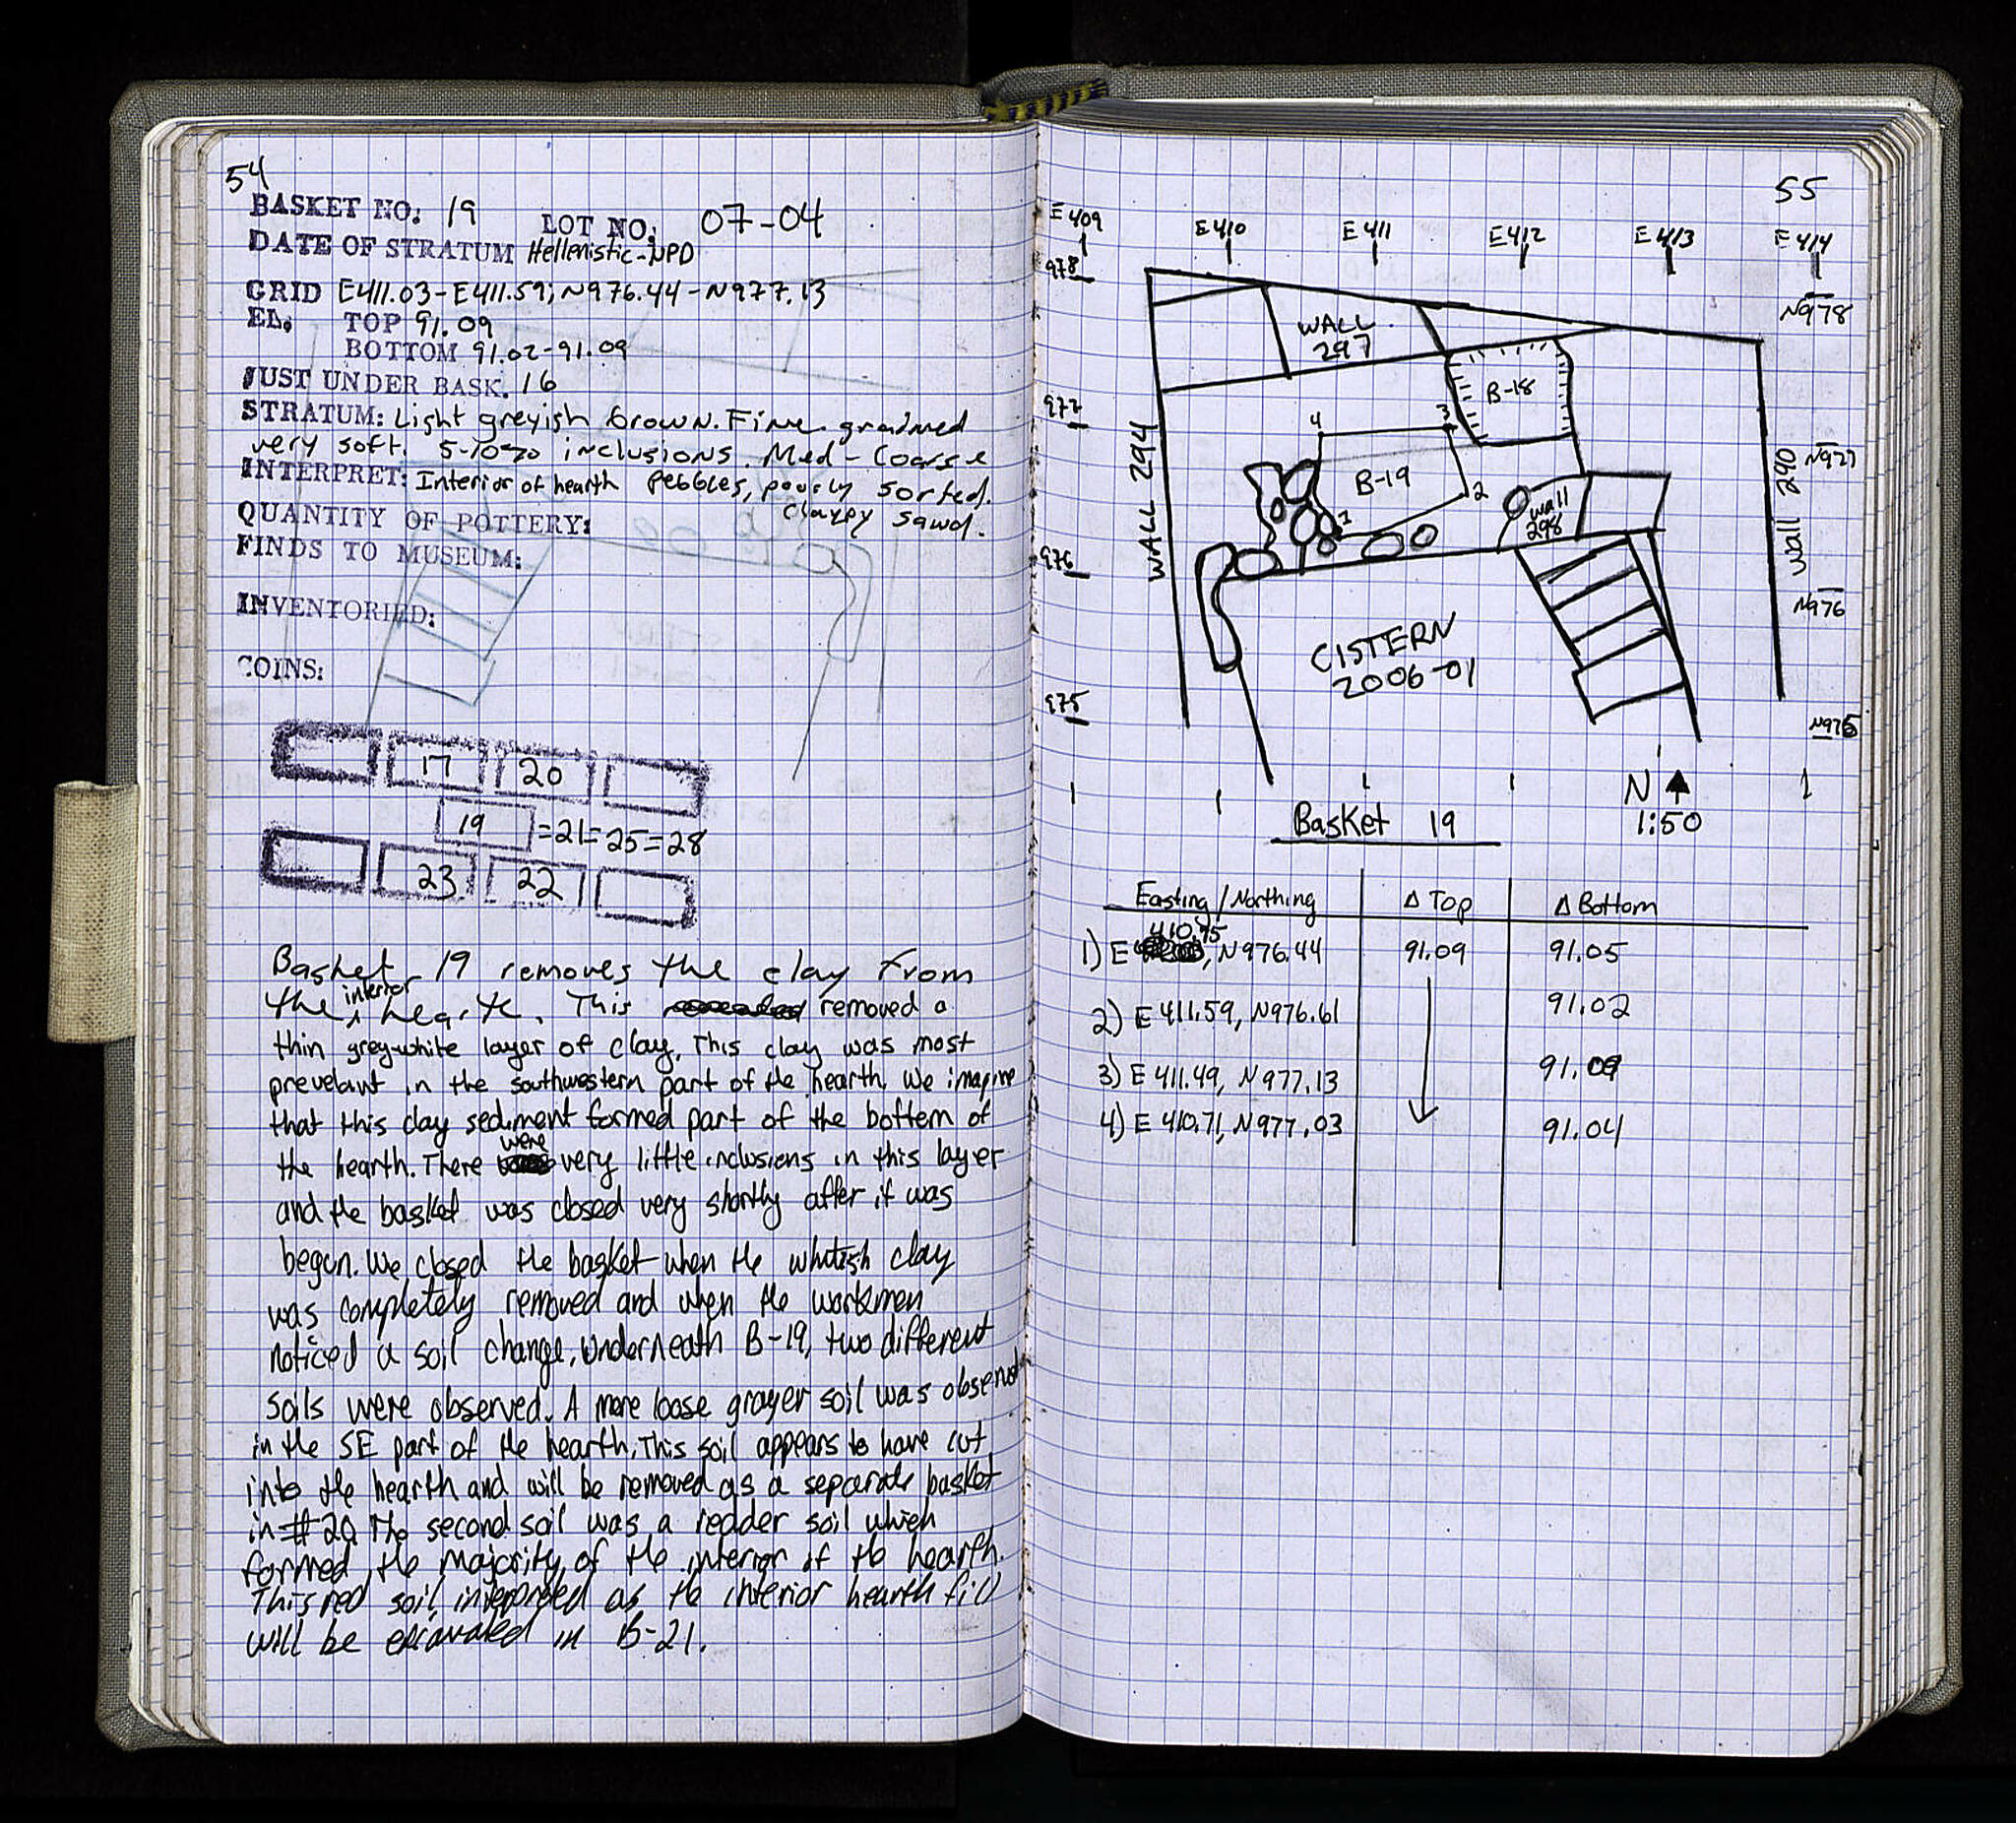 54
BASKET NO: 19 LOT NO: 07-04
DATE OF STRATUM Hellenistic-NPD
GRID E411.03-E411.59; N976.44-N977.13
EL. TOP 91.09
BOTTOM 91.02-91.09
JUST UNDER BASK. 16
STRATUM: Light greyish brown. Fine grained
very soft. 5-10% inclusions. Med-Coarse
INTERPRET: Interior of hearth Pebbles, poorly sorted.
Clayey sand.
QUANTITY OF POTTERY:
FINDS TO MUSEUM:
INVENTORIED:
COINS:
17 20
19 =21=25=28
23 22
Basket 19 removes the clay from
the interior hearth. This removed a
thin grey-white layer of clay. This clay was most
prevelant in the southwestern part of the hearth. We imagine
that this clay sediment formed part of the bottom of
the hearth. There were very little inclusions in this layer
and the basket was closed very shortly after it was
begun. We closed the basket when the whitish clay
was completely removed and when the workmen
noticed a soil change. Underneath B-19, two different
soils were observed. A more loose grayer soil was observed
in the SE part of the hearth. This soil appears to have cut
into the hearth and will be removed as a separate basket
in #20. The second soil was a redder soil which
formed the majority of the interior of the hearth.
This red soil, interpreted as the interior hearth fill
will be excavated in B-21.
55
E409 E410 E411 E412 E413 E414
978
N978
WALL
297
B-18
977
4 3
N977
WALL 294
B-19
2
1
wall
298
wall 290
976
N976
CISTERN
2006-01
975
N975
N
1:50
Basket 19
Easting/Northing Δ Top Δ Bottom
410.95
1) E , N976.44 91.09 91.05
2) E 411.59, N976.61 91.02
3) E 411.49, N977.13 91.09
4) E 410.71, N977.03 91.04